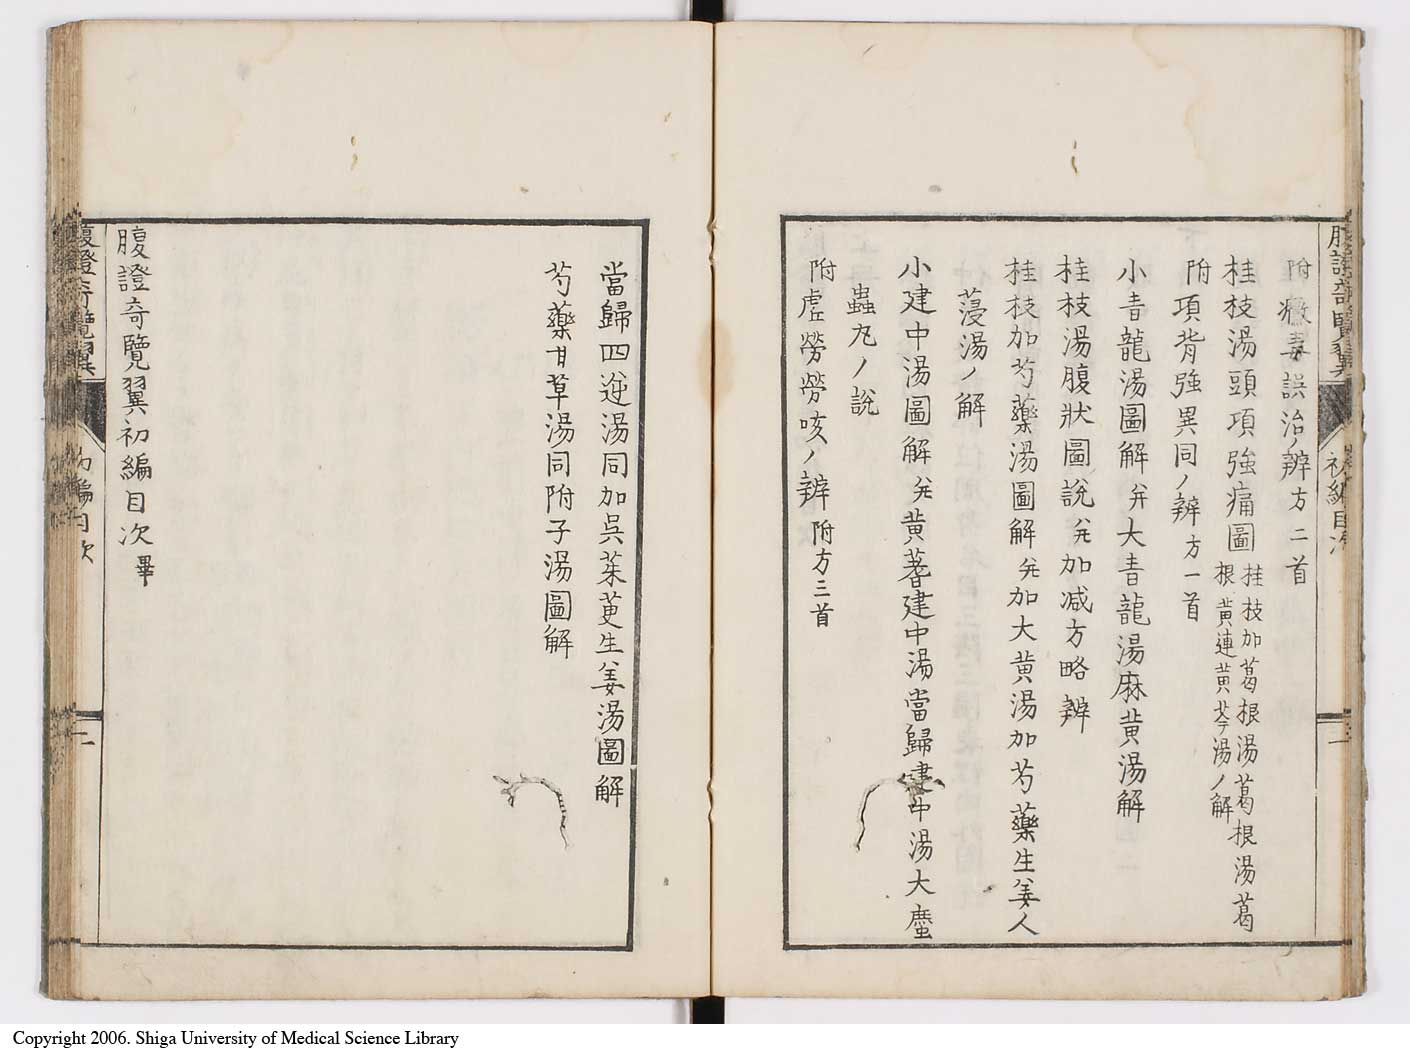 附黴毒誤治ノ辨方二首
桂枝湯頭項強痛圖
桂枝加葛根湯葛根湯葛
根黄連黄芩湯ノ解
附項背強異同ノ辨方一首
小青龍湯圖解并大青龍湯麻黄湯解
桂枝湯腹狀圖說并加減方略辨
桂枝加芍藥湯圖解并加大黄湯加芍藥生姜人
薓湯ノ解
小建中湯圖解并黄蓍建中湯當歸建中湯大䗪
蟲丸ノ說
附虛勞勞咳ノ辨附方三首
當歸四逆湯同加吳茱萸生姜湯圖解
芍藥甘草湯同附子湯圖解
腹證奇覽翼初編目次畢
腹證奇覽翼
初編目次
二
Copyright 2006. Shiga University of Medical Science Library